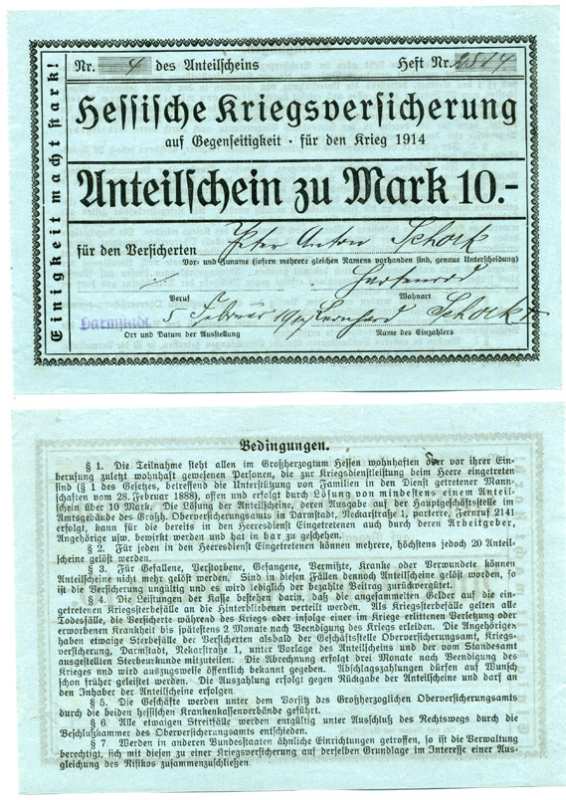 Einigkeit macht stark!
Nr. 4 des Anteilscheins Heft Nr. 2814
Hessische Kriegsversicherung
auf Gegenseitigkeit · für den Krieg 1914
Anteilschein zu Mark 10.-
für den Versicherten Peter Anton Schork
Vor- und Zuname (sofern mehrere gleichen Namens vorhanden sind, genaue Unterscheidung)
Beruf Wohnort
Darmstadt 5 Februar Leonhard Schork
Ort und Datum der Ausstellung Name des Einzahlers
Bedingungen.
§ 1. Die Teilnahme steht allen im Großherzogtum Hessen wohnhaften oder vor ihrer Ein-
berufung zuletzt wohnhaft gewesenen Personen, die zur Kriegsdienstleistung beim Heere eingetreten
sind (§ 1 des Gesetzes, betreffend die Unterstützung von Familien in den Dienst getretener Mann-
schaften vom 28. Februar 1888), offen und erfolgt durch Lösung von mindestens einem Anteil-
schein über 10 Mark. Die Lösung der Anteilscheine, deren Ausgabe auf der Hauptgeschäftsstelle im
Amtsgebäude des Großh. Oberversicherungsamts in Darmstadt, Neckarstraße 1, parterre, Fernruf 2141
erfolgt, kann für die bereits in den Heeresdienst Eingetretenen auch durch deren Arbeitgeber,
Angehörige usw. bewirkt werden und hat in bar zu geschehen.
§ 2. Für jeden in den Heeresdienst Eingetretenen können mehrere, höchstens jedoch 20 Anteil-
scheine gelöst werden.
§ 3. Für Gefallene, Verstorbene, Gefangene, Vermißte, Kranke oder Verwundete können
Anteilscheine nicht mehr gelöst werden. Sind in diesen Fällen dennoch Anteilscheine gelöst worden, so
ist die Versicherung ungültig und es wird lediglich der bezahlte Beitrag zurückvergütet.
§ 4. Die Leistungen der Kasse bestehen darin, daß die angesammelten Gelder auf die ein-
getretenen Kriegssterbefälle an die Hinterbliebenen verteilt werden. Als Kriegssterbefälle gelten alle
Todesfälle, die Versicherte während des Kriegs oder infolge einer im Kriege erlittenen Verletzung oder
erworbenen Krankheit bis spätestens 2 Monate nach Beendigung des Kriegs erleiden. Die Angehörigen
haben etwaige Sterbefälle der Versicherten alsbald der Geschäftsstelle Oberversicherungsamt, Kriegs-
versicherung, Darmstadt, Nekarstraße 1, unter Vorlage des Anteilscheins und der vom Standesamt
ausgestellten Sterbeurkunde mitzuteilen. Die Abrechnung erfolgt drei Monate nach Beendigung des
Krieges und wird auszugsweise öffentlich bekannt gegeben. Abschlagszahlungen dürfen auf Wunsch
schon früher geleistet werden. Die Auszahlung erfolgt gegen Rückgabe der Anteilscheine und darf an
den Inhaber der Anteilscheine erfolgen
§ 5. Die Geschäfte werden unter dem Vorsitz des Großherzoglichen Oberversicherungsamts
durch die beiden hessischen Krankenkassenverbände geführt.
§ 6. Alle etwaigen Streitfälle werden entgültig unter Ausschluß des Rechtswegs durch die
Beschlußkammer des Oberversicherungsamts entschieden.
§ 7 Werden in anderen Bundesstaaten ähnliche Einrichtungen getroffen, so ist die Verwaltung
berechtigt, sich mit diesen zu einer Kriegsversicherung auf derselben Grundlage im Interesse einer Aus-
gleichung des Risikos zusammenzuschließen.